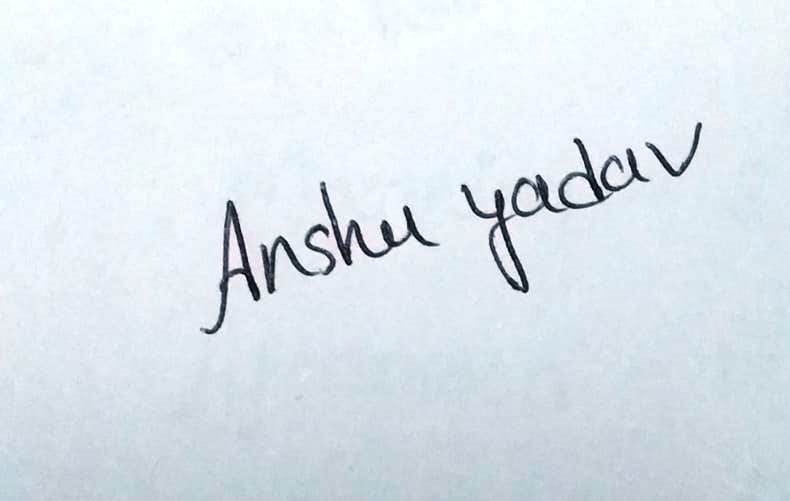 Anshu yadav